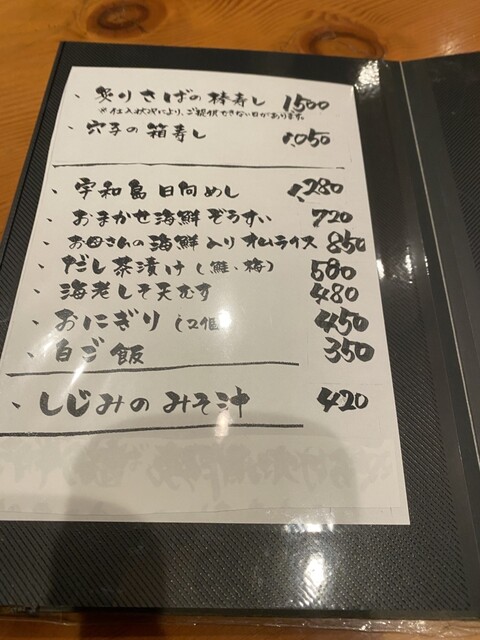 ・炙りさばの棒寿し 1500
※仕入状況により、ご提供できない日があります。
・穴子の箱寿し 1050
・宇和島日向めし 1,280
・おまかせ海鮮ぞうすい 720
・お母さんの海鮮入りオムライス 850
・だし茶漬け(鮭・梅) 580
・海老しそ天むす 480
・おにぎり(2個 450
・白ご飯 350
・しじみのみそ汁 420